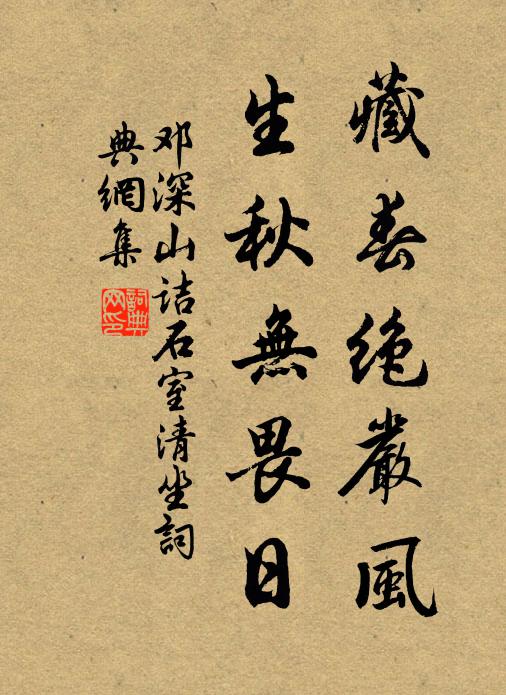 藏春絶嚴風
生秋無畏日
邓深山诘石室清坐詞
典網集
詞典
网印